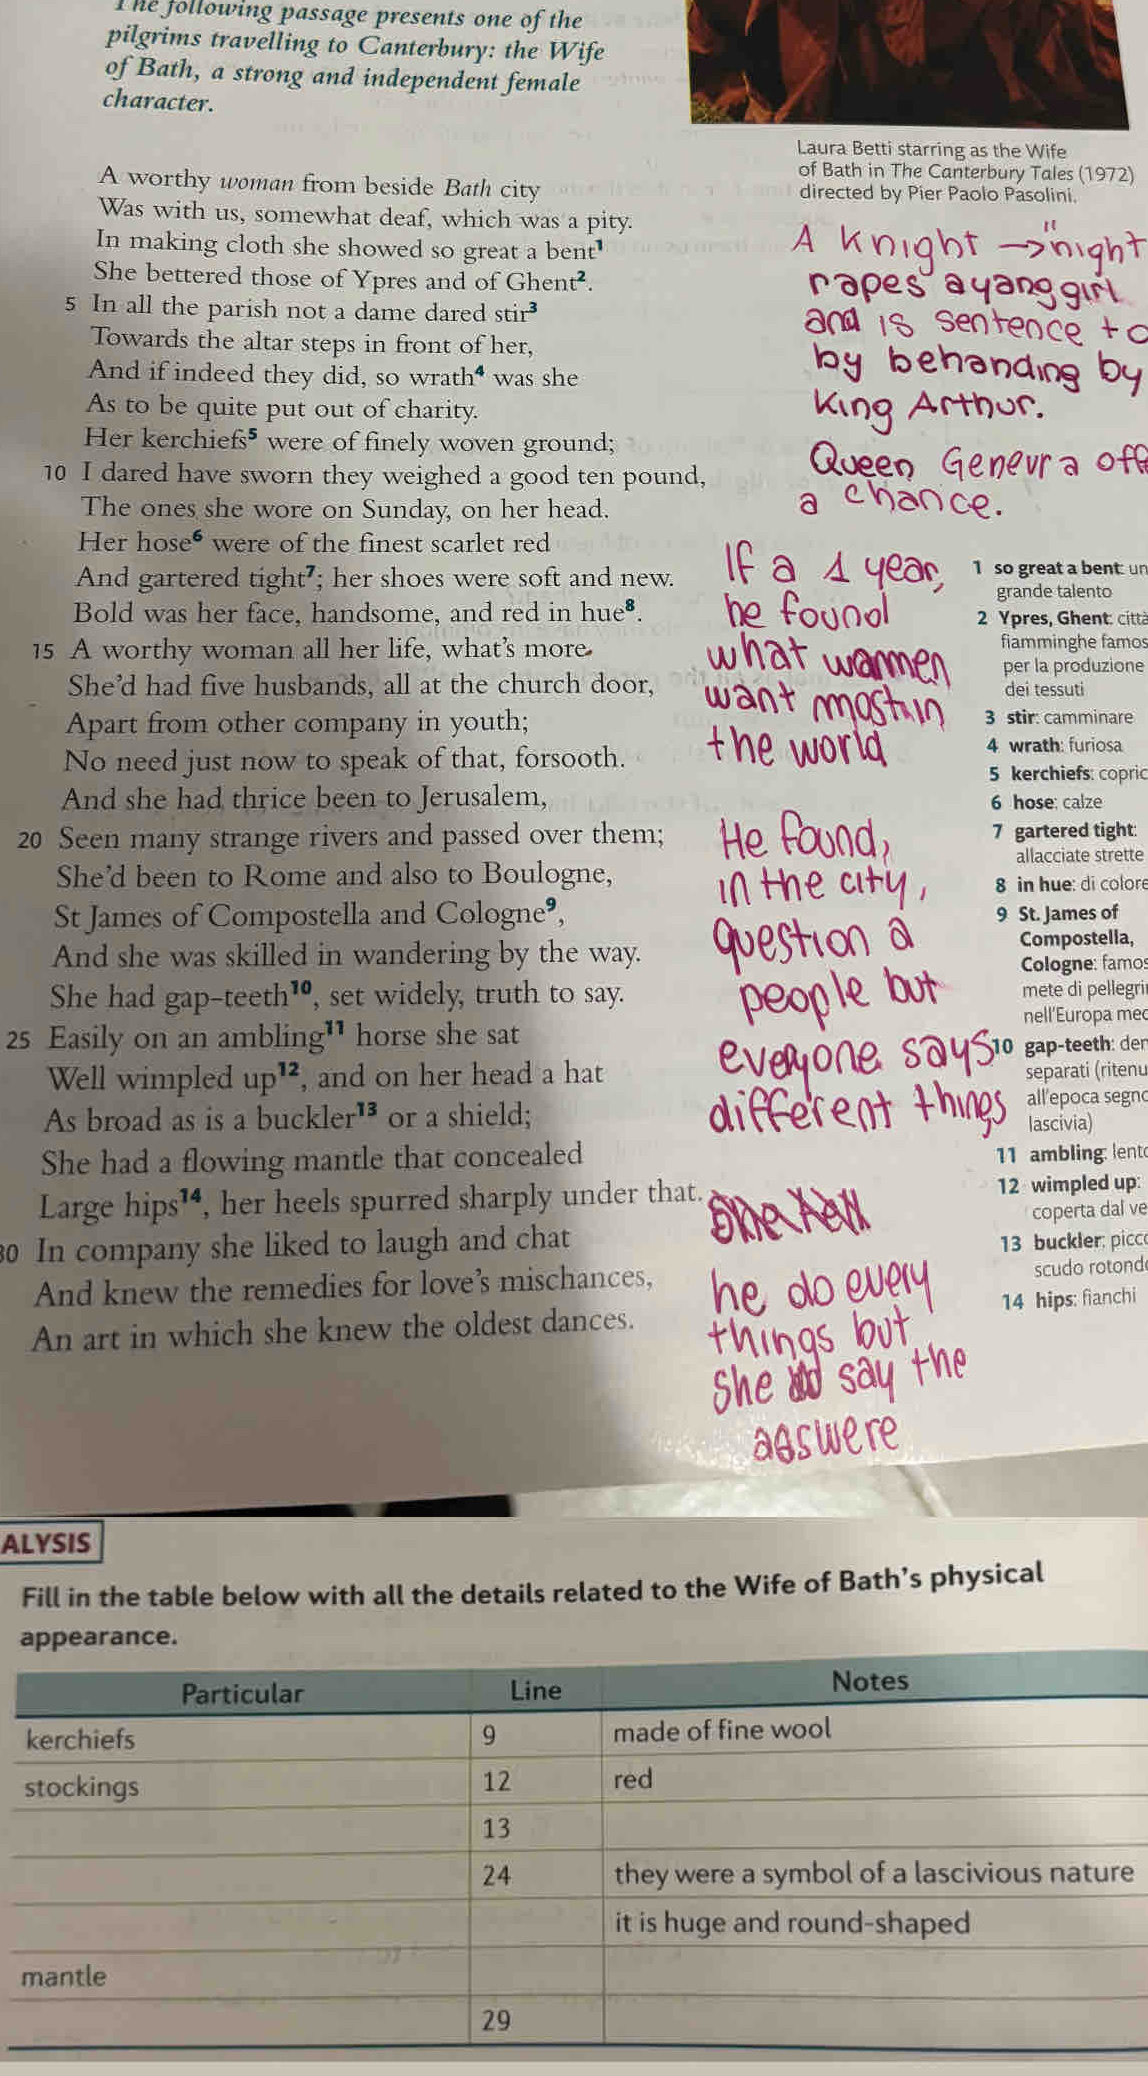 The following passage presents one of the
pilgrims travelling to Canterbury: the Wife
of Bath, a strong and independent female
character.
Laura Betti starring as the Wife
of Bath in The Canterbury Tales (1972)
directed by Pier Paolo Pasolini.
A worthy woman from beside Bath city
Was with us, somewhat deaf, which was a pity.
In making cloth she showed so great a bent1
She bettered those of Ypres and of Ghent2.
5 In all the parish not a dame dared stir3
Towards the altar steps in front of her,
And if indeed they did, so wrath4 was she
As to be quite put out of charity.
Her kerchiefs5 were of finely woven ground;
10 I dared have sworn they weighed a good ten pound,
The ones she wore on Sunday, on her head.
Her hose6 were of the finest scarlet red
And gartered tight7; her shoes were soft and new.
Bold was her face, handsome, and red in hue8.
15 A worthy woman all her life, what's more
She'd had five husbands, all at the church door,
Apart from other company in youth;
No need just now to speak of that, forsooth.
And she had thrice been to Jerusalem,
20 Seen many strange rivers and passed over them;
She'd been to Rome and also to Boulogne,
St James of Compostella and Cologne9,
And she was skilled in wandering by the way.
She had gap-teeth10, set widely, truth to say.
25 Easily on an ambling11 horse she sat
Well wimpled up12, and on her head a hat
As broad as is a buckler13 or a shield;
She had a flowing mantle that concealed
Large hips14, her heels spurred sharply under that.
30 In company she liked to laugh and chat
And knew the remedies for love's mischances,
An art in which she knew the oldest dances.
A Knight → "night
rapes a yang girl
and is sentence to
by behanding by
King Arthur.
Queen Genevra off
a chance.
If a 1 year,
he found
what wammen
want most in
the world
He found,
in the city,
question a
people but
everyone says
different things
he do every
things but
she say the
asswere
1 so great a bent: un
grande talento
2 Ypres, Ghent: città
fiamminghe famos
per la produzione
dei tessuti
3 stir: camminare
4 wrath: furiosa
5 kerchiefs: copric
6 hose: calze
7 gartered tight:
allacciate strette
8 in hue: di colore
9 St. James of
Compostella,
Cologne: famos
mete di pellegri
nell'Europa med
10 gap-teeth: den
separati (ritenu
all'epoca segno
lascivia)
11 ambling: lento
12 wimpled up:
coperta dal ve
13 buckler: picco
scudo rotondo
14 hips: fianchi
ALYSIS
Fill in the table below with all the details related to the Wife of Bath's physical
appearance.
Particular Line Notes
kerchiefs 9 made of fine wool
stockings 12 red
13
24 they were a symbol of a lascivious nature
it is huge and round-shaped
mantle
29